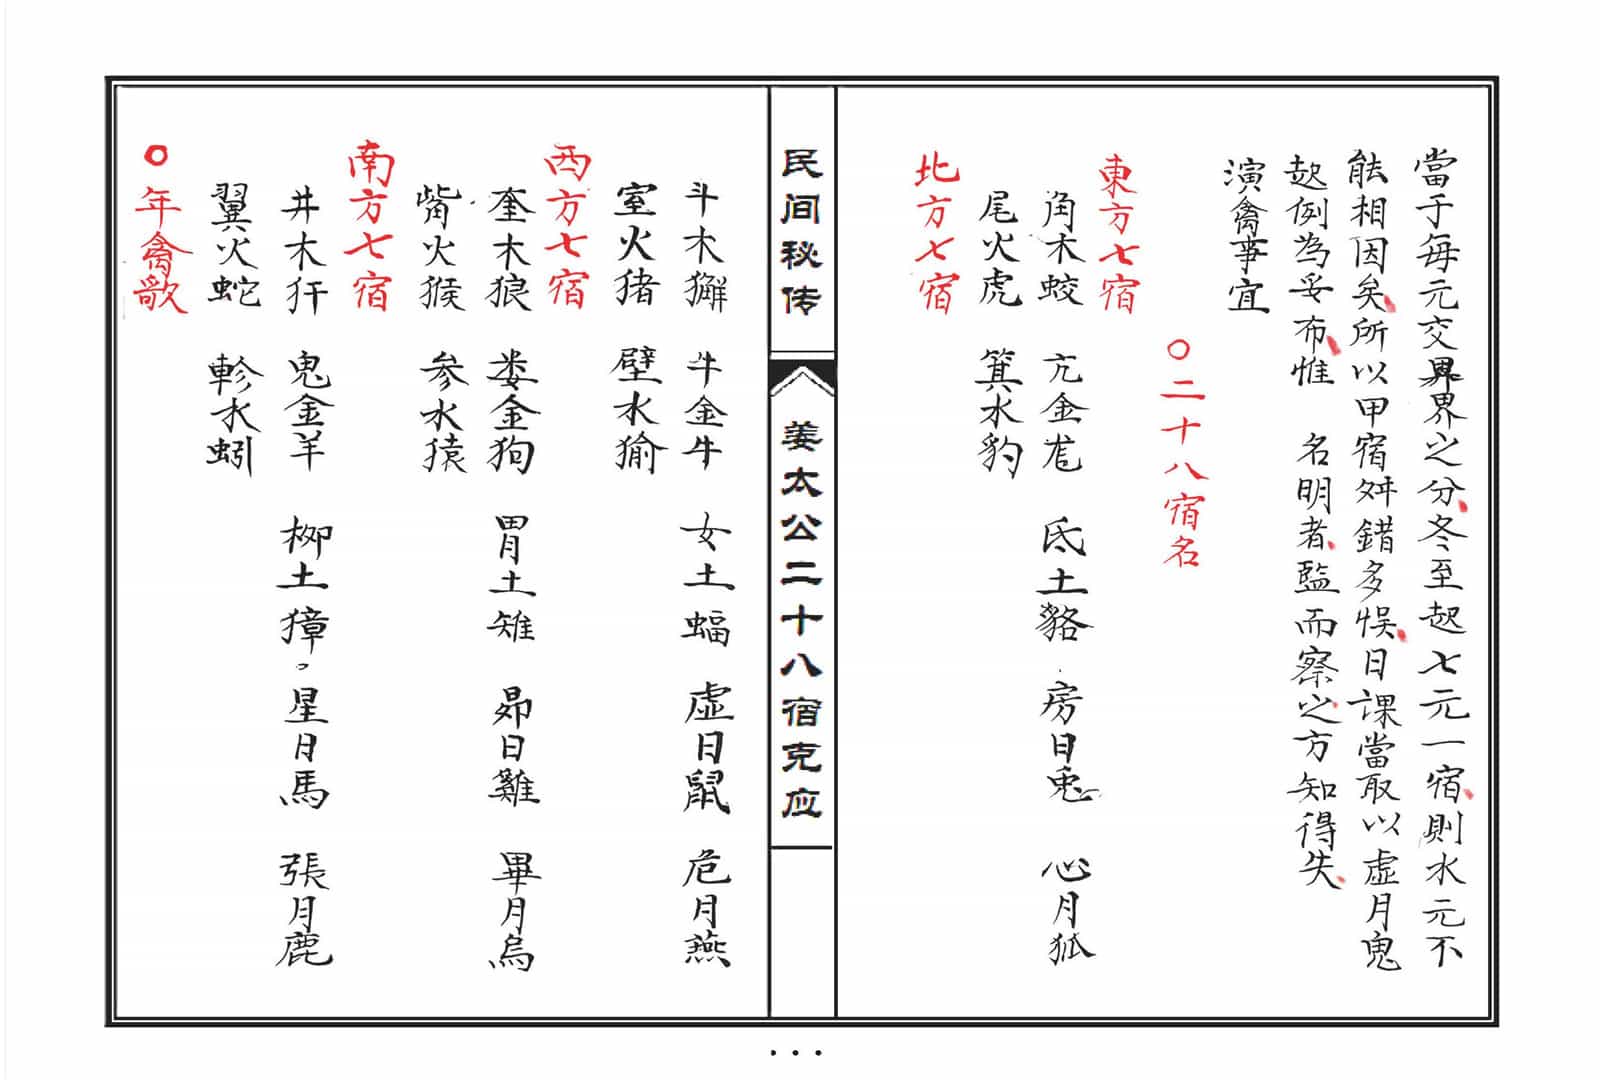 當于每元交界界之分冬至起七元一宿則水元不
能相因矣所以甲宿舛錯多悞日課當取以虛月鬼
起例為妥布惟 名明者監而察之方知得失
演禽事宜
○二十八宿名
東方七宿
角木蛟 亢金尨 氐土貉 房日兎 心月狐
尾火虎 箕水豹
北方七宿
民间秘传
姜太公二十八宿克应
斗木獬 牛金牛 女土蝠 虛日鼠 危月燕
室火猪 壁水㺄
西方七宿
奎木狼 娄金狗 胃土雉 昴日雞 畢月烏
觜火猴 参水猿
南方七宿
井木犴 鬼金羊 柳土獐 星日馬 張月鹿
翼火蛇 軫水蚓
○年禽歌